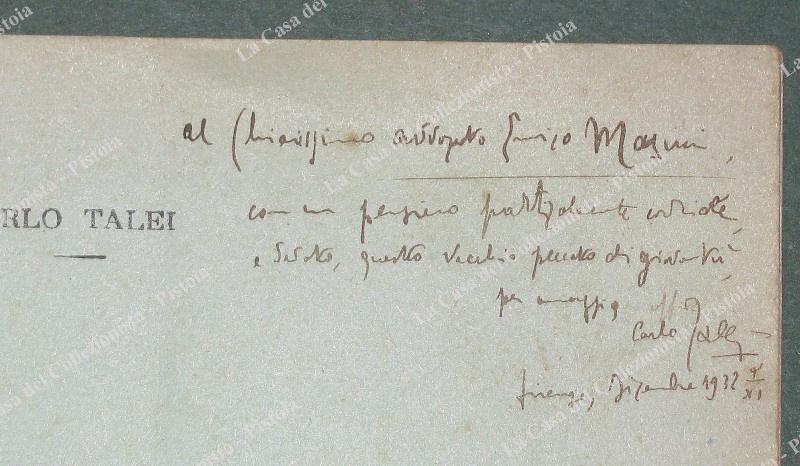 al Chiarissimo avvocato Enrico Masini,
RLO TALEI
con un pensiero particolarmente cordiale
e devoto, questo vecchio peccato di gioventù,
per omaggio offre
Carlo Talei
Firenze, Dicembre 1932
XI
La Casa del Collezionista - Pistoia